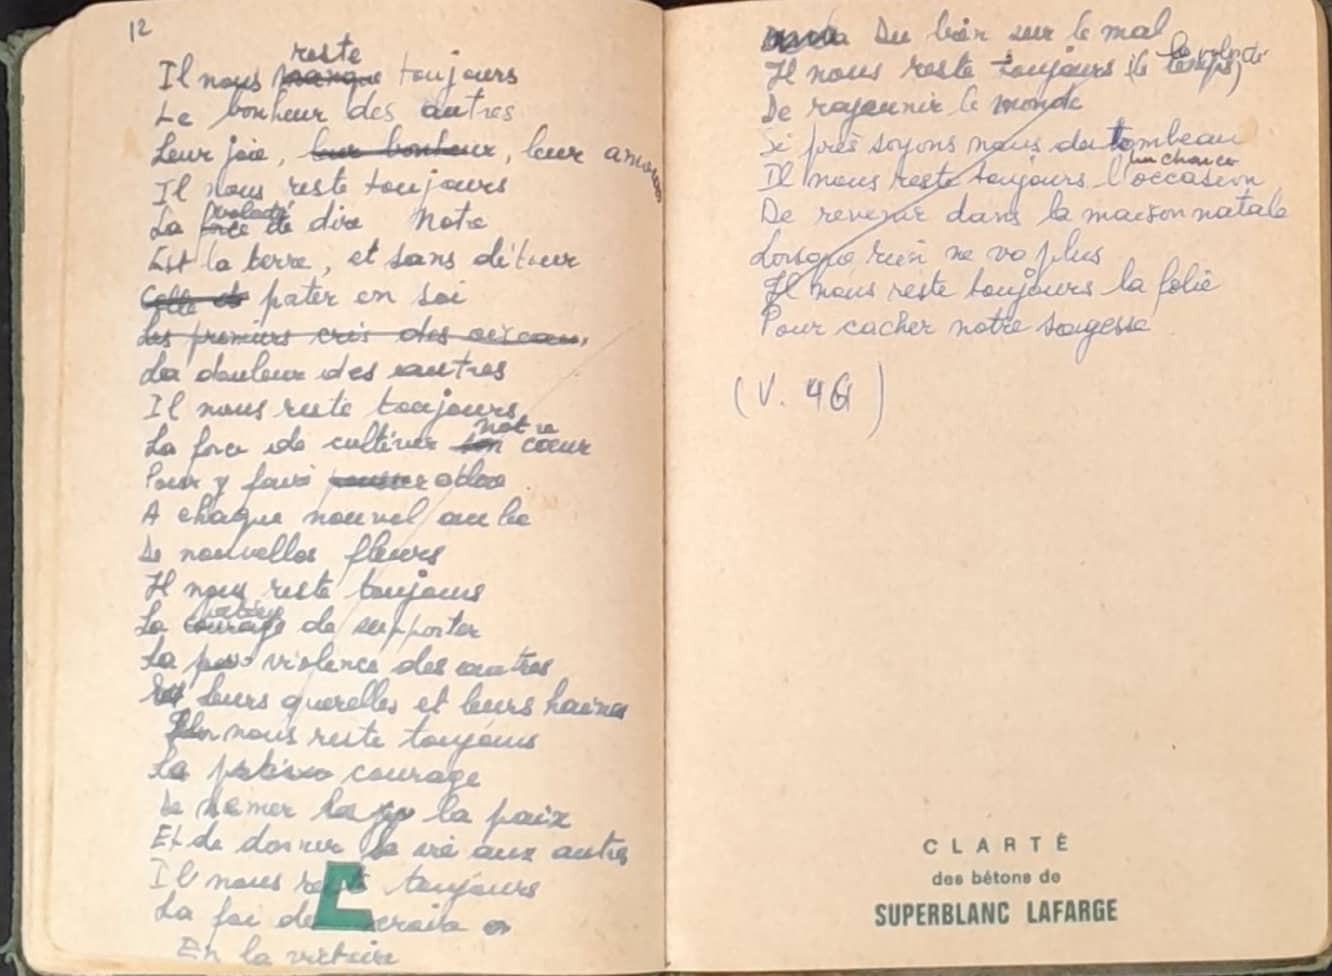 12
reste
Il nous manque toujours
Le bonheur des autres
Leur joie, leur bonheur, leur amour
Il nous reste toujours
volonté
La force de dire Notre
Est la terre, et sans détour
Celle et pater en soi
Les premiers cris des oiseaux,
La douleur des autres
Il nous reste toujours
notre
La force de cultiver son cœur
Pour y faire
A chaque nouvel aube
De nouvelles fleurs
Il nous reste toujours
La courage de supporter
La violence des autres
leurs querelles et leurs haines
nous reste toujours
La courage
De semer la paix
Et de donner la vie aux autres
Il nous reste toujours
La foi de croire
En la victoire
Du bien sur le mal
la volonté
Il nous reste toujours (le temps)
De rajeunir le monde
Si près soyons nous du tombeau
un chance
Il nous reste toujours l'occasion
De revenir dans la maison natale
Lorsque rien ne va plus
Il nous reste toujours la folie
Pour cacher notre sagesse
(V. 4G)
CLARTÉ
des bétons de
SUPERBLANC LAFARGE